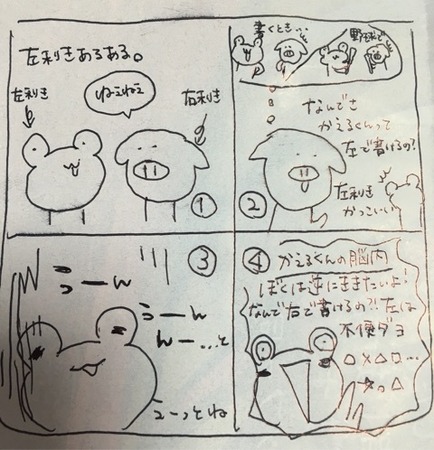 左利きあるある。
左利き
ねぇねぇ
右利き
①
書くとき…
野球で
なんでさ
かえるくんって
左で書けるの?
左利き
かっこいい
②
③
うーん
うーん
んー…と
えーっとね
④
かえるくんの脳内
ぼくは逆にききたいよ!
なんで右で書けるの?!左は
不便ダヨ
○×△□…